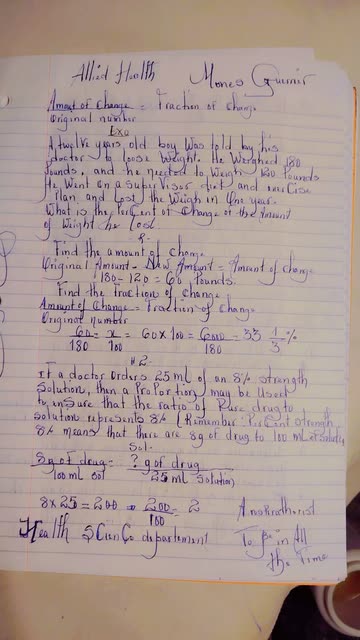 Allied Health Mones Guerrir
Amount of Change = Fraction of Change
Original number
Exo
A twelve years old boy was told by his
doctor to loose weight. He weighed 180
Pounds, and he needed to weigh 120 Pounds
He went on a supervisor diet and exercise
Plan, and lost the weigh in one year.
What is the Percent of Change of the Amount
of Weight he lost
Find the amount of change
Original Amount - New Amount = Amount of change
180 - 120 = 60 Pounds.
Find the fraction of change
Amount of Change = Fraction of Change
Original number
60/180 = x/100 = 60 x 100 = 6000/180 = 33 1/3 %
# 2:
If a doctor orders 25 ml of an 8% strength
Solution, then a Proportion may be used
to ensure that the ratio of Pure drug to
Solution represents 8% (Remember Percent strength
8% means that there are 8g of drug to 100 ml of solution)
Sol
8g of drug = ? g of drug
100 ml sol 25 ml solution
8 x 25 = 200 = 200/100 = 2
Health Science departement To Be in All
the Time